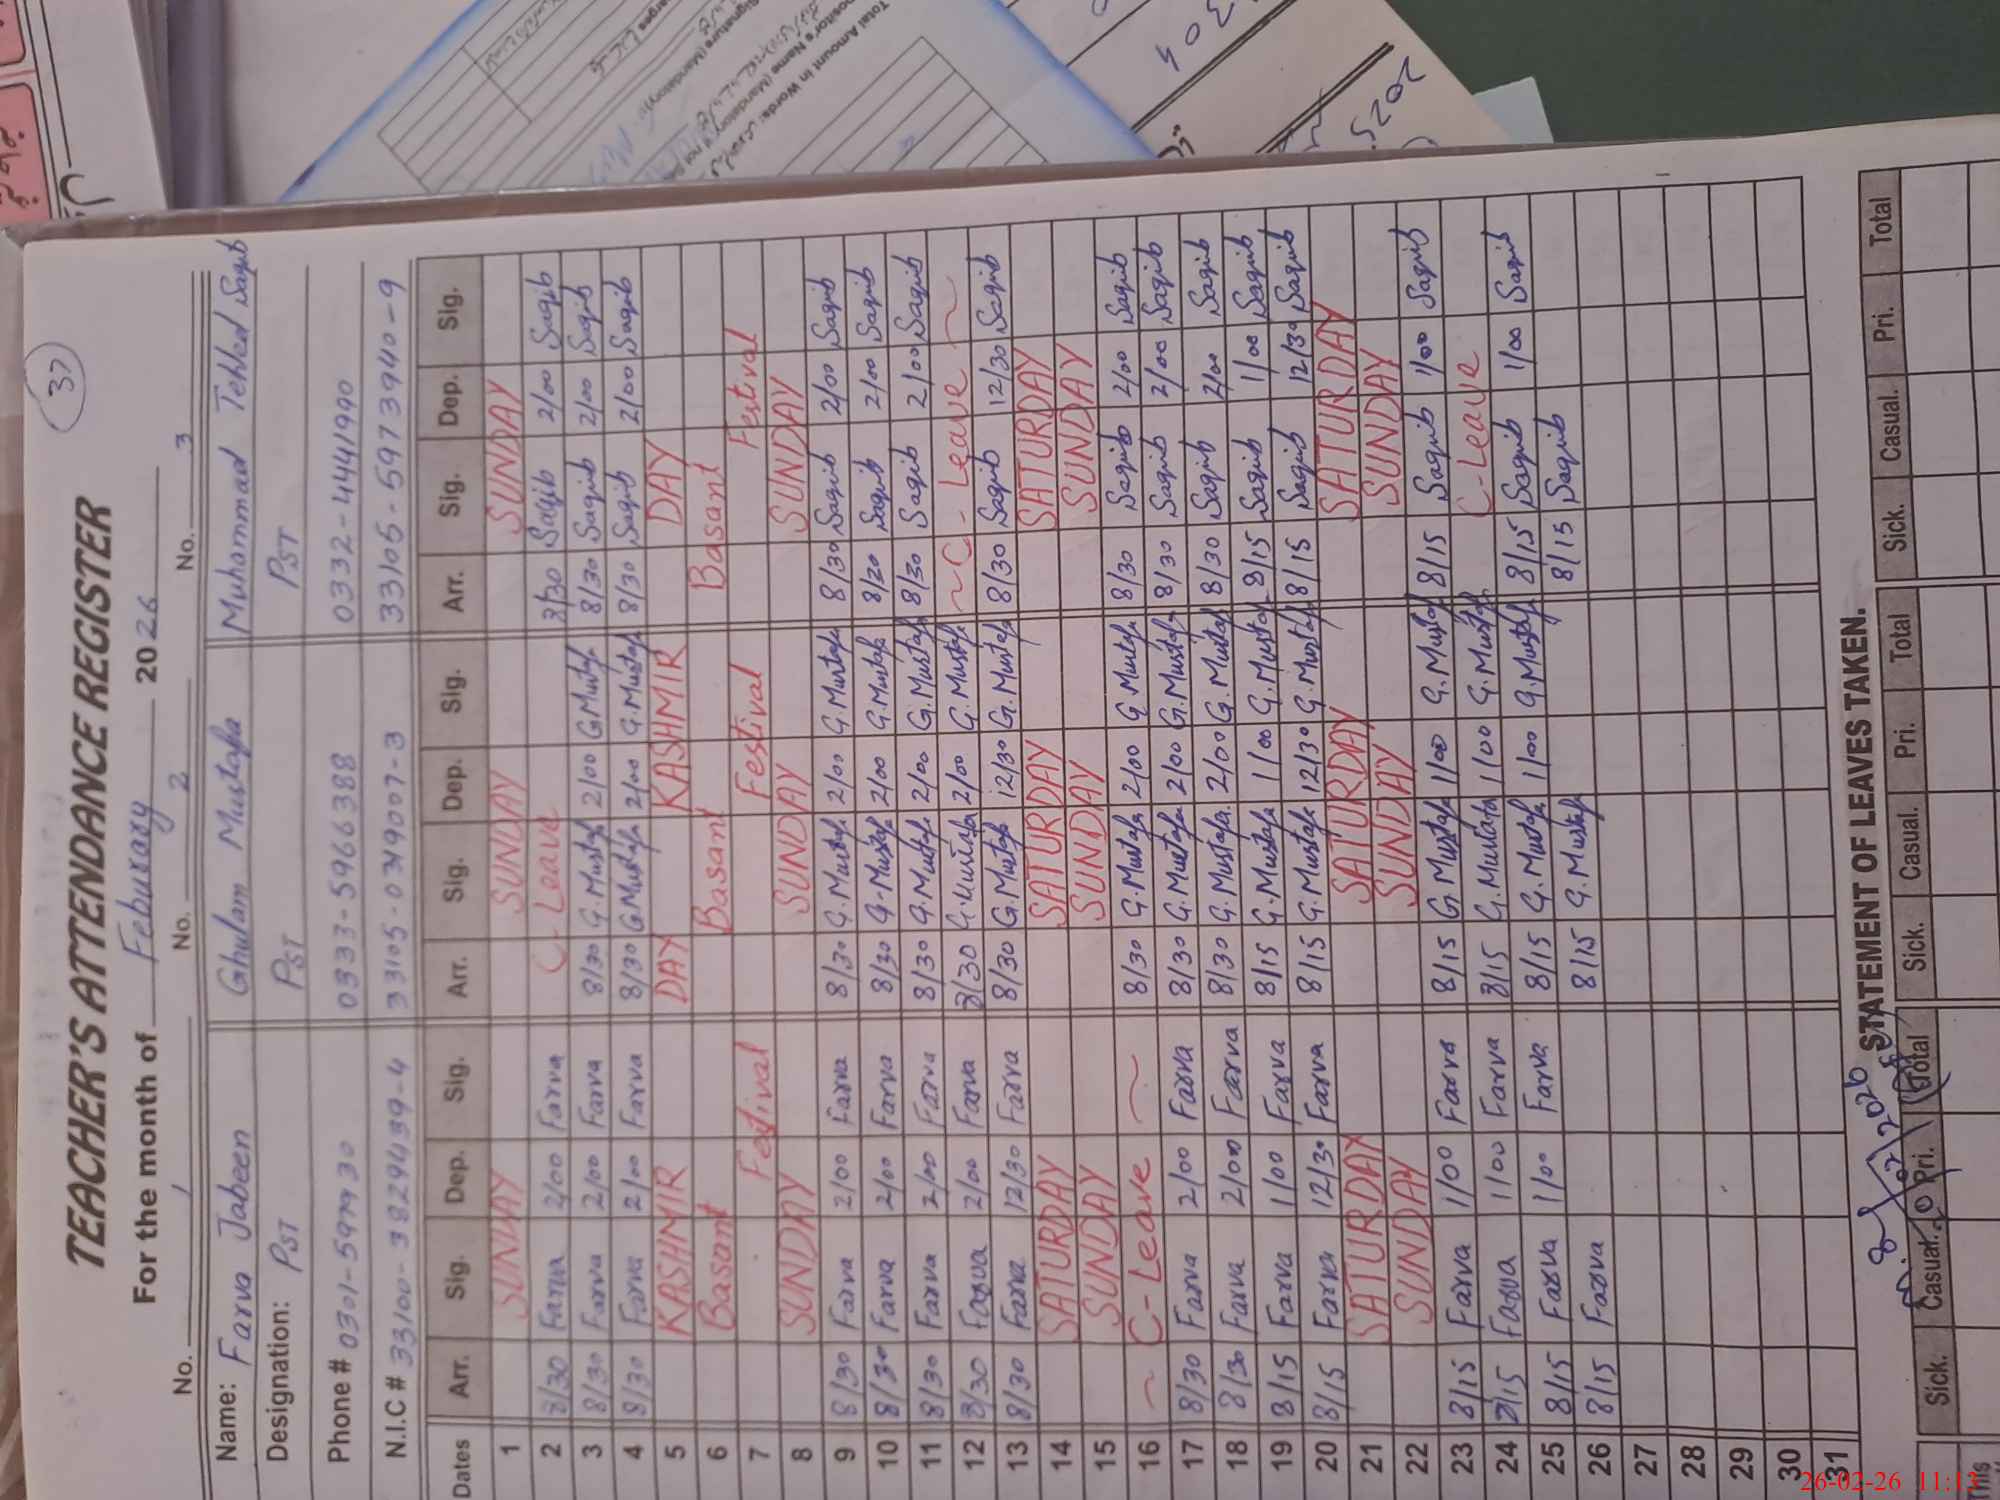 37
TEACHER'S ATTENDANCE REGISTER
For the month of Feburary 2026
No. 1 No. 2 No. 3
Name: Farva Jabeen Ghulam Mustafa Muhammad Tehled Saqib
Designation: PST PST PST
Phone # 0333-5966388 0332-4441990
N.I.C # 33100-3829439-4 33105-0349007-3 33105-5973940-9
Dates Arr. Sig. Dep. Sig. Arr. Sig. Dep. Sig. Arr. Sig. Dep. Sig.
1 SUNDAY SUNDAY SUNDAY
2 8/30 Farva 2/00 Farva C-Leave 8/30 Saqib 2/00 Saqib
3 8/30 Farva 2/00 Farva 8/30 G.Mustafa 2/00 G.Mustafa 8/30 Saqib 2/00 Saqib
4 8/30 Farva 2/00 Farva 8/30 G.Mustafa 2/00 G.Mustafa 8/30 Saqib 2/00 Saqib
5 KASHMIR DAY KASHMIR DAY
6 Basant Basant Basant
7 Festival Festival Festival
8 SUNDAY SUNDAY SUNDAY
9 8/30 Farva 2/00 Farva 8/30 G.Mustafa 2/00 G.Mustafa 8/30 Saqib 2/00 Saqib
10 8/30 Farva 2/00 Farva 8/30 G.Mustafa 2/00 G.Mustafa 8/20 Saqib 2/00 Saqib
11 8/30 Farva 2/00 Farva 8/30 G.Mustafa 2/00 G.Mustafa 8/30 Saqib 2/00 Saqib
12 8/30 Farva 2/00 Farva 8/30 G.Mustafa 2/00 G.Mustafa ~C-Leave~
13 8/30 Farva 12/30 Farva 8/30 G.Mustafa 12/30 G.Mustafa 8/30 Saqib 12/30 Saqib
14 SATURDAY SATURDAY SATURDAY
15 SUNDAY SUNDAY SUNDAY
16 ~C-Leave~ 8/30 G.Mustafa 2/00 G.Mustafa 8/30 Saqib 2/00 Saqib
17 8/30 Farva 2/00 Farva 8/30 G.Mustafa 2/00 G.Mustafa 8/30 Saqib 2/00 Saqib
18 8/30 Farva 2/00 Farva 8/30 G.Mustafa 2/00 G.Mustafa 8/30 Saqib 2/00 Saqib
19 8/15 Farva 1/00 Farva 8/15 G.Mustafa 1/00 G.Mustafa 8/15 Saqib 1/00 Saqib
20 8/15 Farva 12/30 Farva 8/15 G.Mustafa 12/30 G.Mustafa 8/15 Saqib 12/30 Saqib
21 SATURDAY SATURDAY SATURDAY
22 SUNDAY SUNDAY SUNDAY
23 8/15 Farva 1/00 Farva 8/15 G.Mustafa 1/00 G.Mustafa 8/15 Saqib 1/00 Saqib
24 8/15 Farva 1/00 Farva 8/15 G.Mustafa 1/00 G.Mustafa C-Leave
25 8/15 Farva 1/00 Farva 8/15 G.Mustafa 1/00 G.Mustafa 8/15 Saqib 1/00 Saqib
26 8/15 Farva 8/15 G.Mustafa 8/15 Saqib
27
28
29
30
31
STATEMENT OF LEAVES TAKEN.
Sick. Casual. Pri. Total Sick. Casual. Pri. Total Sick. Casual. Pri. Total
This
Total Amount in Words:
26-02-26 11:13